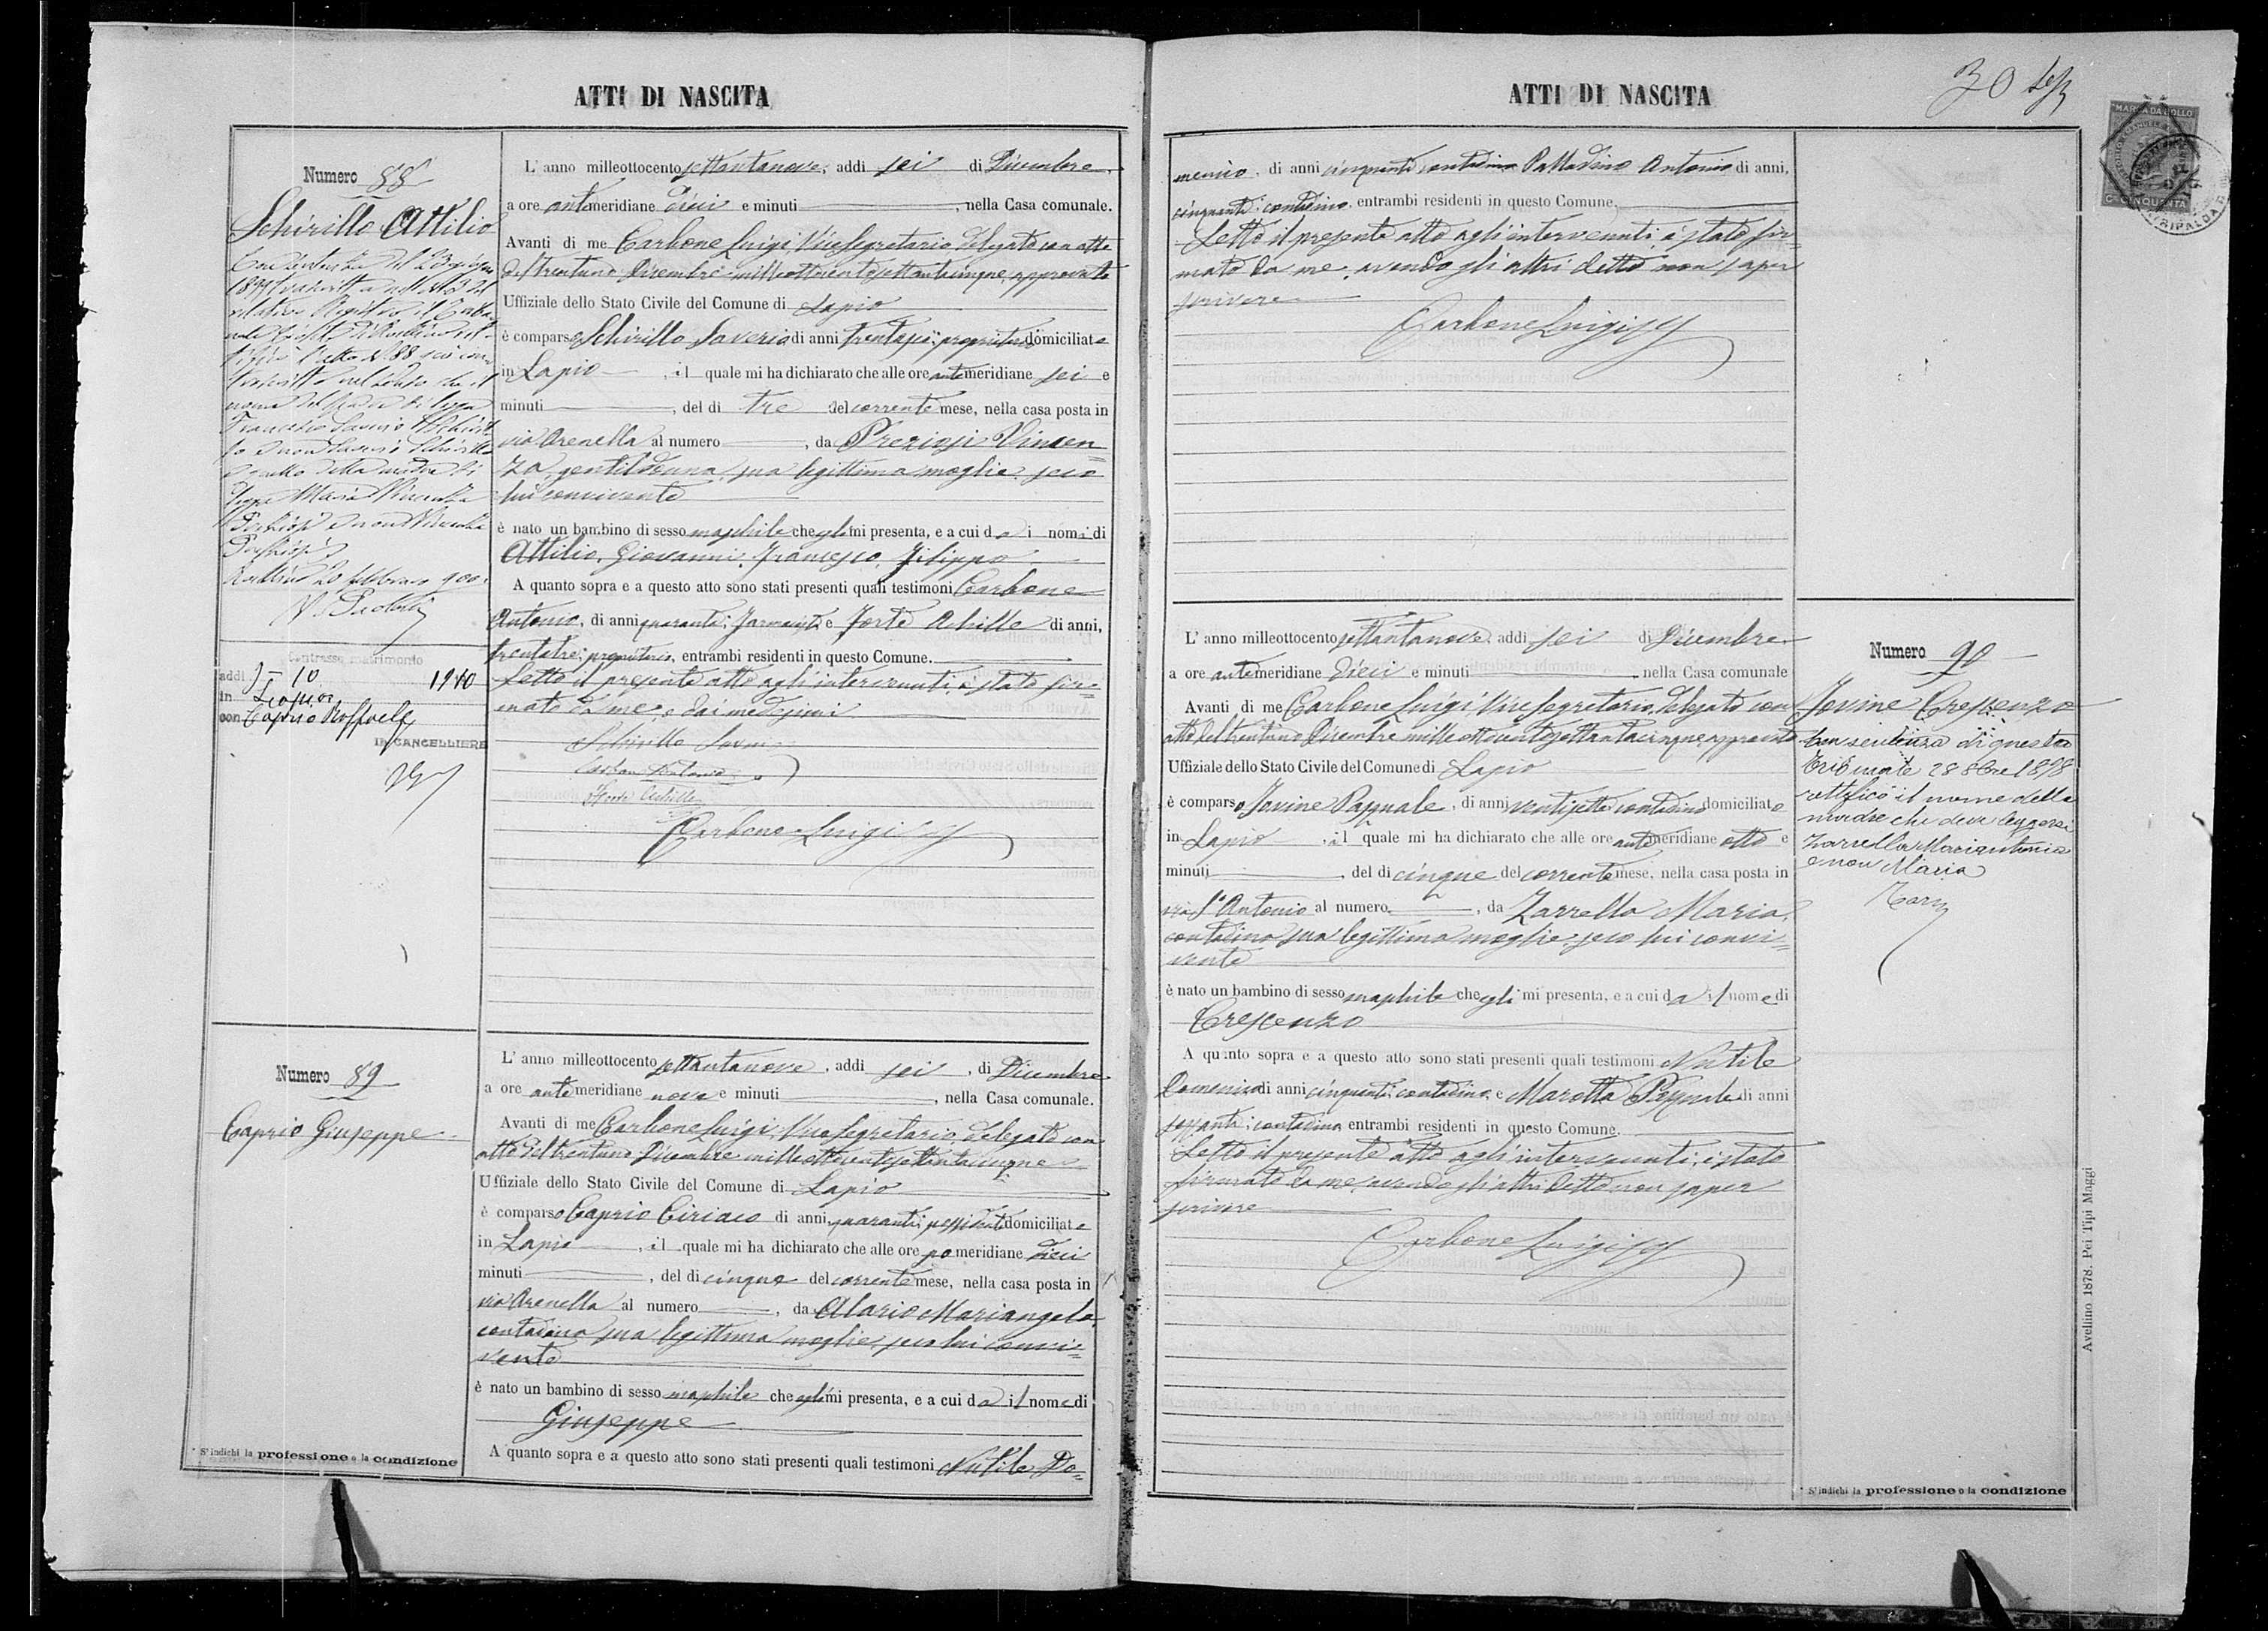 ATTI DI NASCITA
Numero 88
Schirillo Attilio
Con sentenza del 23 giugno
1899
l'atto N. 88
nel senso che il
nome del padre si legga
Francesco Saverio Schirill
lo e non Saverio Schirillo
e quello della madre si
legga Maria Vincenza
Preziosi e non Vincenza
Preziosi
Avellino 20 febbraio 900
Contrasse matrimonio
addì 9-10 1910
in Lapio
con Caprio Raffaela
IL CANCELLIERE
L'anno milleottocento settantanove, addì sei di Dicembre,
a ore antimeridiane dieci e minuti , nella Casa comunale.
Avanti di me Carbone Luigi, Vice Segretario, delegato con atto
del trentuno Dicembre milleottocentosettantacinque, approvato
Uffiziale dello Stato Civile del Comune di Lapio
è comparso Schirillo Saverio di anni trentasei, proprietario domiciliato
in Lapio , il quale mi ha dichiarato che alle ore antimeridiane sei e
minuti , del dì tre del corrente mese, nella casa posta in
via Arenella al numero , da Preziosi Vincen=
za gentildonna, sua legittima moglie, seco
lui convivente
è nato un bambino di sesso maschile che egli mi presenta, e a cui dà i nomi di
Attilio, Giovanni, Francesco, Filippo
A quanto sopra e a questo atto sono stati presenti quali testimoni Carbone
Antonio, di anni quaranta, e Forte Achille di anni,
trentatre, proprietario, entrambi residenti in questo Comune.
Letto il presente atto agl'intervenuti, è stato fir=
mato da me, e dai medesimi
Schirillo Saverio
Carbone Antonio
Forte Achille
Carbone Luigi
Numero 89
Caprio Giuseppe
L'anno milleottocento settantanove, addì sei, di Dicembre
a ore antimeridiane nove e minuti , nella Casa comunale.
Avanti di me Carbone Luigi, Vice Segretario, delegato con
atto del trentuno Dicembre milleottocentosettantacinque
Uffiziale dello Stato Civile del Comune di Lapio
è comparso Caprio Ciriaco di anni quaranta, possidente domiciliato
in Lapio , il quale mi ha dichiarato che alle ore pomeridiane dieci
minuti , del dì cinque del corrente mese, nella casa posta in
via Arenella al numero , da Alario Mariangela,
contadina sua legittima moglie, seco lui convi=
vente
è nato un bambino di sesso maschile che egli mi presenta, e a cui dà il nome di
Giuseppe
A quanto sopra e a questo atto sono stati presenti quali testimoni Nutile Do=
* S'indichi la professione o la condizione
ATTI DI NASCITA
30
MARCA DA BOLLO
Cmi CINQUANTA
menico, di anni cinquanta contadino Palladino Antonio di anni,
cinquanta, contadino, entrambi residenti in questo Comune.
Letto il presente atto agl'intervenuti, è stato fir=
mato da me, avendo gli altri detto non saper
scrivere
Carbone Luigi
L'anno milleottocento settantanove, addì sei di Dicembre
a ore antimeridiane dieci e minuti , nella Casa comunale
Avanti di me Carbone Luigi, Vice Segretario, delegato con
atto del trentuno Dicembre milleottocentosettantacinque, approvato
Uffiziale dello Stato Civile del Comune di Lapio
è comparso Iovine Pasquale, di anni ventisette contadino domiciliato
in Lapio , il quale mi ha dichiarato che alle ore antimeridiane otto e
minuti , del dì cinque del corrente mese, nella casa posta in
via S. Antonio al numero , da Zarrella Maria,
contadina sua legittima moglie, seco lui convi=
vente
è nato un bambino di sesso maschile che egli mi presenta, e a cui dà il nome di
Crescenzo
A quanto sopra e a questo atto sono stati presenti quali testimoni Nutile
Domenico di anni cinquanta, contadino, e Marotta Pasquale di anni
sessanta, contadino, entrambi residenti in questo Comune.
Letto il presente atto agl'intervenuti, è stato
firmato da me, avendo gli altri detto non saper
scrivere
Carbone Luigi
Numero 90
Iovine Crescenzo
Con sentenza di questo
Tribunale 28 8bre 1898
rettificò il nome della
madre che deve leggersi
Zarrella Mariantonia
e non Maria
* S'indichi la professione o la condizione
Avellino 1878. Pei Tipi Maggi